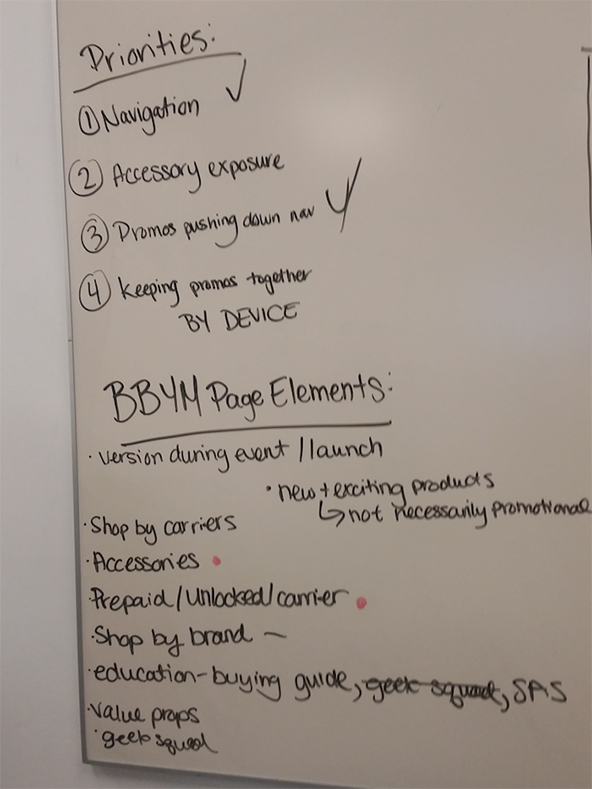 Priorities:
① Navigation ✓
② Accessory exposure
③ Promos pushing down nav ✓
④ Keeping promos together
BY DEVICE
BBYM Page Elements:
· version during event / launch
· new + exciting products
↳ not necessarily promotional
· Shop by carriers
· Accessories
· Prepaid/Unlocked/carrier
· Shop by brand –
· education - buying guide, geek squad, SAS
· value props
· geek squad